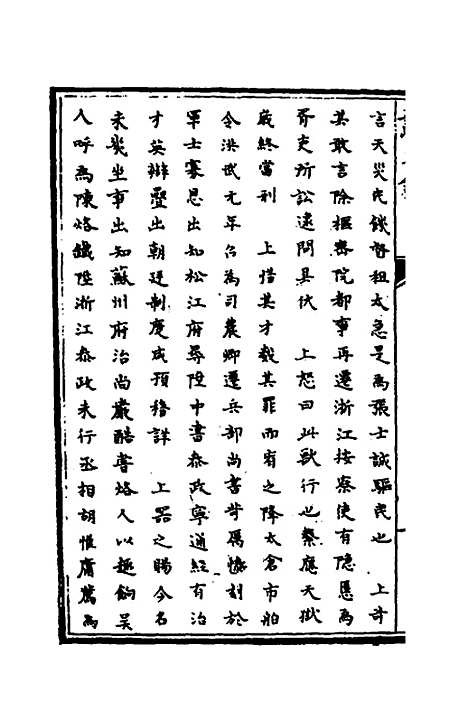 言天災民饑督租太急是為張士誠驅民也　上奇
其敢言除樞密院都事再遷浙江按察使有隱慝為
胥吏所訟逮問具伏　上怒曰此獸行也繫應天獄
歲終當刑　上惜其才救其罪而宥之降太倉市舶
令洪武元年召為司農卿遷兵部尚書苛厲慘刻於
軍士寡恩出知松江府尋陞中書參政寧通經有治
才英辯歷出朝廷制度咸預稽詳　上器之賜今名
未幾坐事出知蘇州府治尚嚴酷嘗烙人以趣餉吳
人呼為陳烙鐵陞浙江參政未行丞相胡惟庸薦為